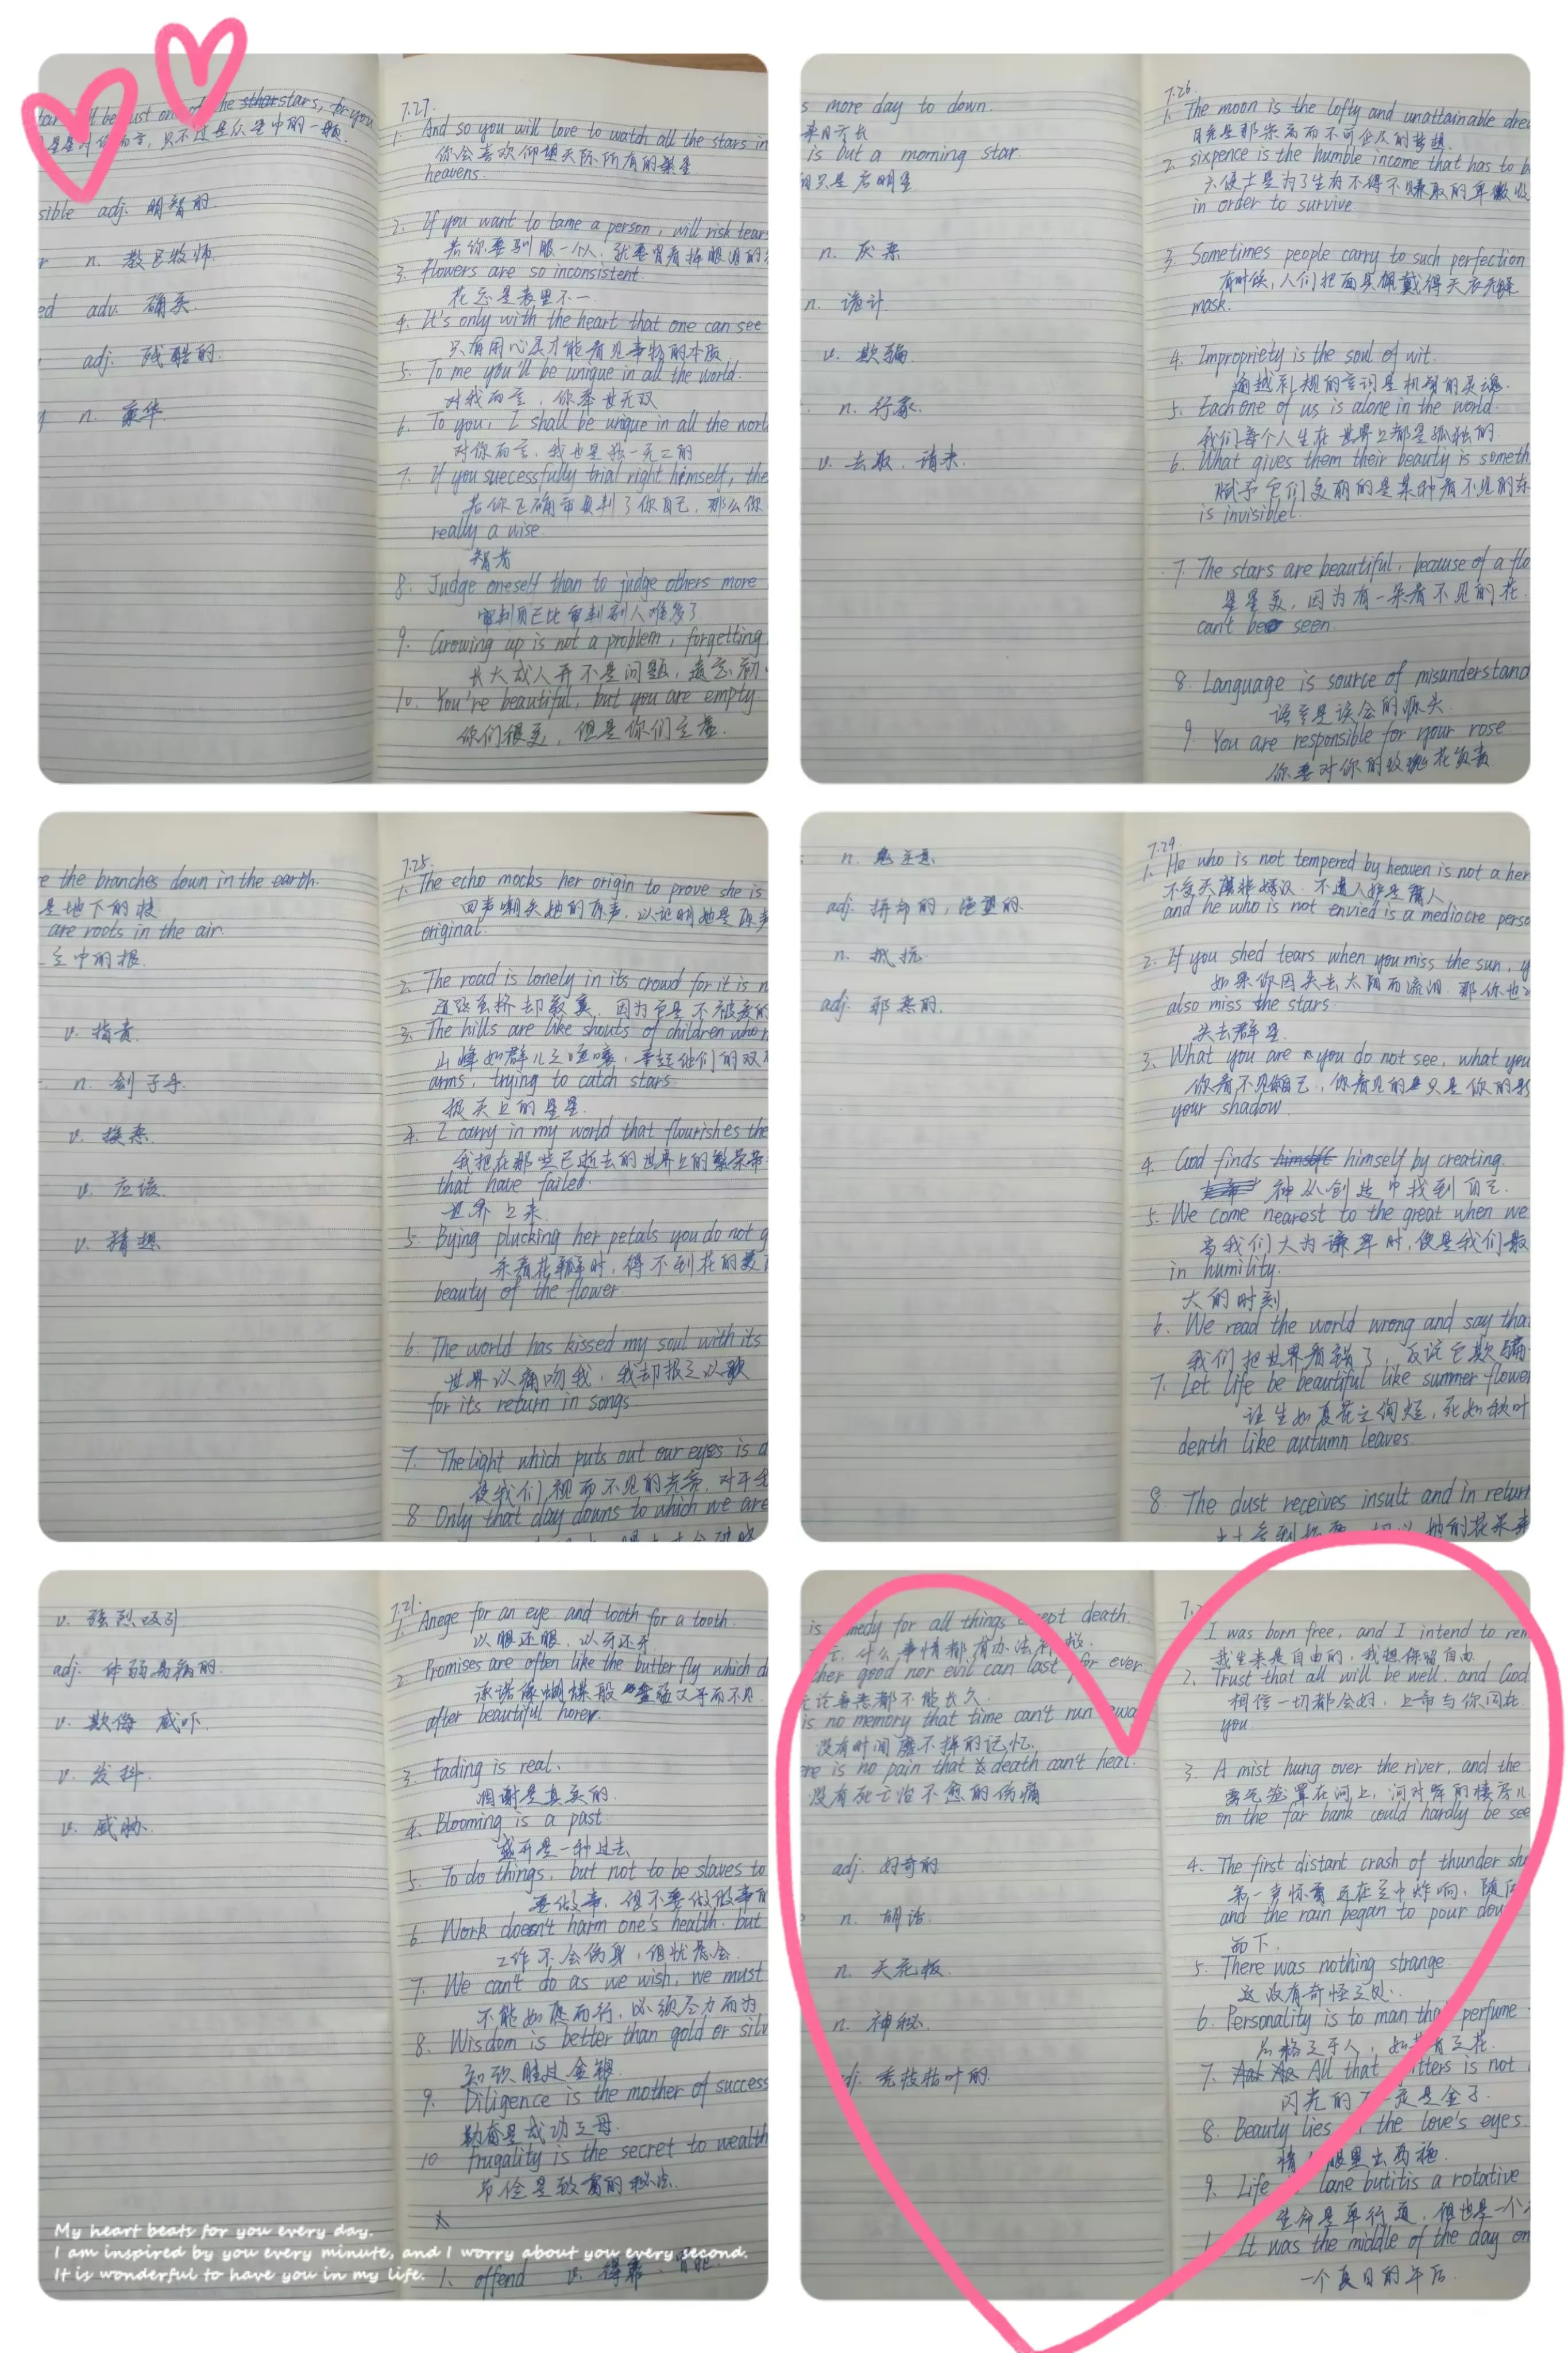 be just one of the stars, for you
星星对你而言，只不过是众星中的一颗.
sible adj. 明智的
r n. 教区牧师.
ed adv. 确实.
adj. 残酷的.
n. 豪华.
7.27.
1. And so you will love to watch all the stars in
你会喜欢仰望天际所有的繁星
heavens.
2. If you want to tame a person, will risk tears
若你要驯服一个人，就要冒着掉眼泪的
3. flowers are so inconsistent
花总是表里不一.
4. It's only with the heart that one can see
只有用心灵才能看见事物的本质
5. To me you'll be unique in all the world.
对我而言，你举世无双
6. To you, I shall be unique in all the worl
对你而言，我也是独一无二的
7. If you successfully trial right himself, the
若你正确审判了你自己，那么你
really a wise.
智者
8. Judge oneself than to judge others more
审判自己比审判别人难多了
9. Growing up is not a problem, forgetting
长大成人并不是问题，遗忘
10. You're beautiful, but you are empty.
你们很美，但是你们空虚.
s more day to down.
来日方长
is but a morning star.
阳只是启明星
n. 灰烬
n. 诡计
v. 欺骗
n. 行家.
v. 去取，请来.
7.26.
1. The moon is the lofty and unattainable drea
月亮是那崇高而不可企及的梦想.
2. sixpence is the humble income that has to b
六便士是为了生存不得不赚取的卑微收
in order to survive
3. Sometimes people carry to such perfection
有时候，人们把面具佩戴得天衣无缝
mask.
4. Impropriety is the soul of wit.
逾越礼规的言词是机智的灵魂.
5. Each one of us is alone in the world.
我们每个人生在世界上都是孤独的.
6. What gives them their beauty is someth
赋予它们美丽的是某种看不见的东
is invisible!
7. The stars are beautiful, because of a flo
星星美，因为有一朵看不见的花.
can't be seen.
8. Language is source of misunderstand
语言是误会的源头.
9. You are responsible for your rose
你要对你的玫瑰花负责
e the branches down in the earth.
是地下的枝
are roots in the air.
空中的根.
v. 指责.
n. 刽子手.
v. 挨来.
v. 应该.
v. 猜想
7.25.
1. The echo mocks her origin to prove she is
回声嘲笑她的原声，以证明她是原声
original.
2. The road is lonely in its crowd for it is n
道路虽挤却寂寞，因为它是不被爱的
3. The hills are like shouts of children who r
山峰如群儿之喧嚷，举起他们的双
arms, trying to catch stars.
捉天上的星星.
4. I carry in my world that flourishes the
我把在那些已逝去的世界上的繁荣带
that have failed.
世界上来.
5. Bying plucking her petals you do not g
采着花瓣时，得不到花的美
beauty of the flower
6. The world has kissed my soul with its
世界以痛吻我，我却报之以歌
for its return in songs.
7. The light which puts out our eyes is a
使我们视而不见的光亮，对于
8. Only that day downs to which we are
n. 鬼主意
adj. 拼命的，绝望的.
n. 抵抗
adj. 邪恶的.
7.24.
1. He who is not tempered by heaven is not a her
不受天磨非好汉，不遭人妒是庸人
and he who is not envied is a mediocre perso
2. If you shed tears when you miss the sun, y
如果你因失去太阳而流泪，那你也
also miss the stars.
失去群星.
3. What you are you do not see, what you
你看不见自己，你看见的只是你的影
your shadow.
4. God finds himself himself by creating.
神从创造中找到自己.
5. We come nearest to the great when we
当我们大为谦卑时，便是我们最
in humility.
大的时刻
6. We read the world wrong and say that
我们把世界看错了，反说它欺骗
7. Let life be beautiful like summer flower
让生如夏花之绚烂，死如秋叶
death like autumn leaves.
8. The dust receives insult and in return
v. 强烈吸引.
adj. 体弱易病的.
v. 欺侮 威吓.
v. 发抖.
v. 威胁.
7.21.
1. Anege for an eye and tooth for a tooth.
以眼还眼，以牙还牙
2. Promises are often like the butterfly which d
承诺像蝴蝶般
after beautiful horer.
3. Fading is real.
凋谢是真实的.
4. Blooming is a past.
盛开是一种过去
5. To do things, but not to be slaves to
要做事，但不要做做事的
6. Work doesn't harm one's health, but
工作不会伤身，但忧虑会.
7. We can't do as we wish, we must
不能如愿而行，必须尽力而为
8. Wisdom is better than gold or silv
知识胜过金银.
9. Diligence is the mother of success
勤奋是成功之母.
10 frugality is the secret to wealth
节俭是致富的秘法.
1. offend v. 得罪，冒犯.
My heart beats for you every day.
I am inspired by you every minute, and I worry about you every second.
It is wonderful to have you in my life.
is remedy for all things except death.
什么事情都有办法补救.
ther good nor evil can last for ever.
无论善恶都不能长久.
is no memory that time can't run awa
没有时间磨不掉的记忆.
re is no pain that death can't heal.
没有死亡治不愈的伤痛
adj. 好奇的
n. 胡话.
n. 天花板.
n. 神秘.
adj. 秃枝枯叶的.
I was born free, and I intend to rem
我生来是自由的，我想保留自由.
2. Trust that all will be well, and God
相信一切都会好，上帝与你同在.
you.
3. A mist hung over the river, and the
雾气笼罩在河上，河对岸的楼房
on the far bank could hardly be see
4. The first distant crash of thunder sh
第一声惊雷远在空中炸响，随
and the rain began to pour dow
而下.
5. There was nothing strange.
这没有奇怪之处.
6. Personality is to man that perfume
品格之于人，如花香之花.
7. All that itters is not
闪光的不一定是金子.
8. Beauty lies the love's eyes.
情人眼里出西施.
9. Life lane but it is a rotative
生命是单行道，但也是一个
1. It was the middle of the day on
一个夏日的午后.